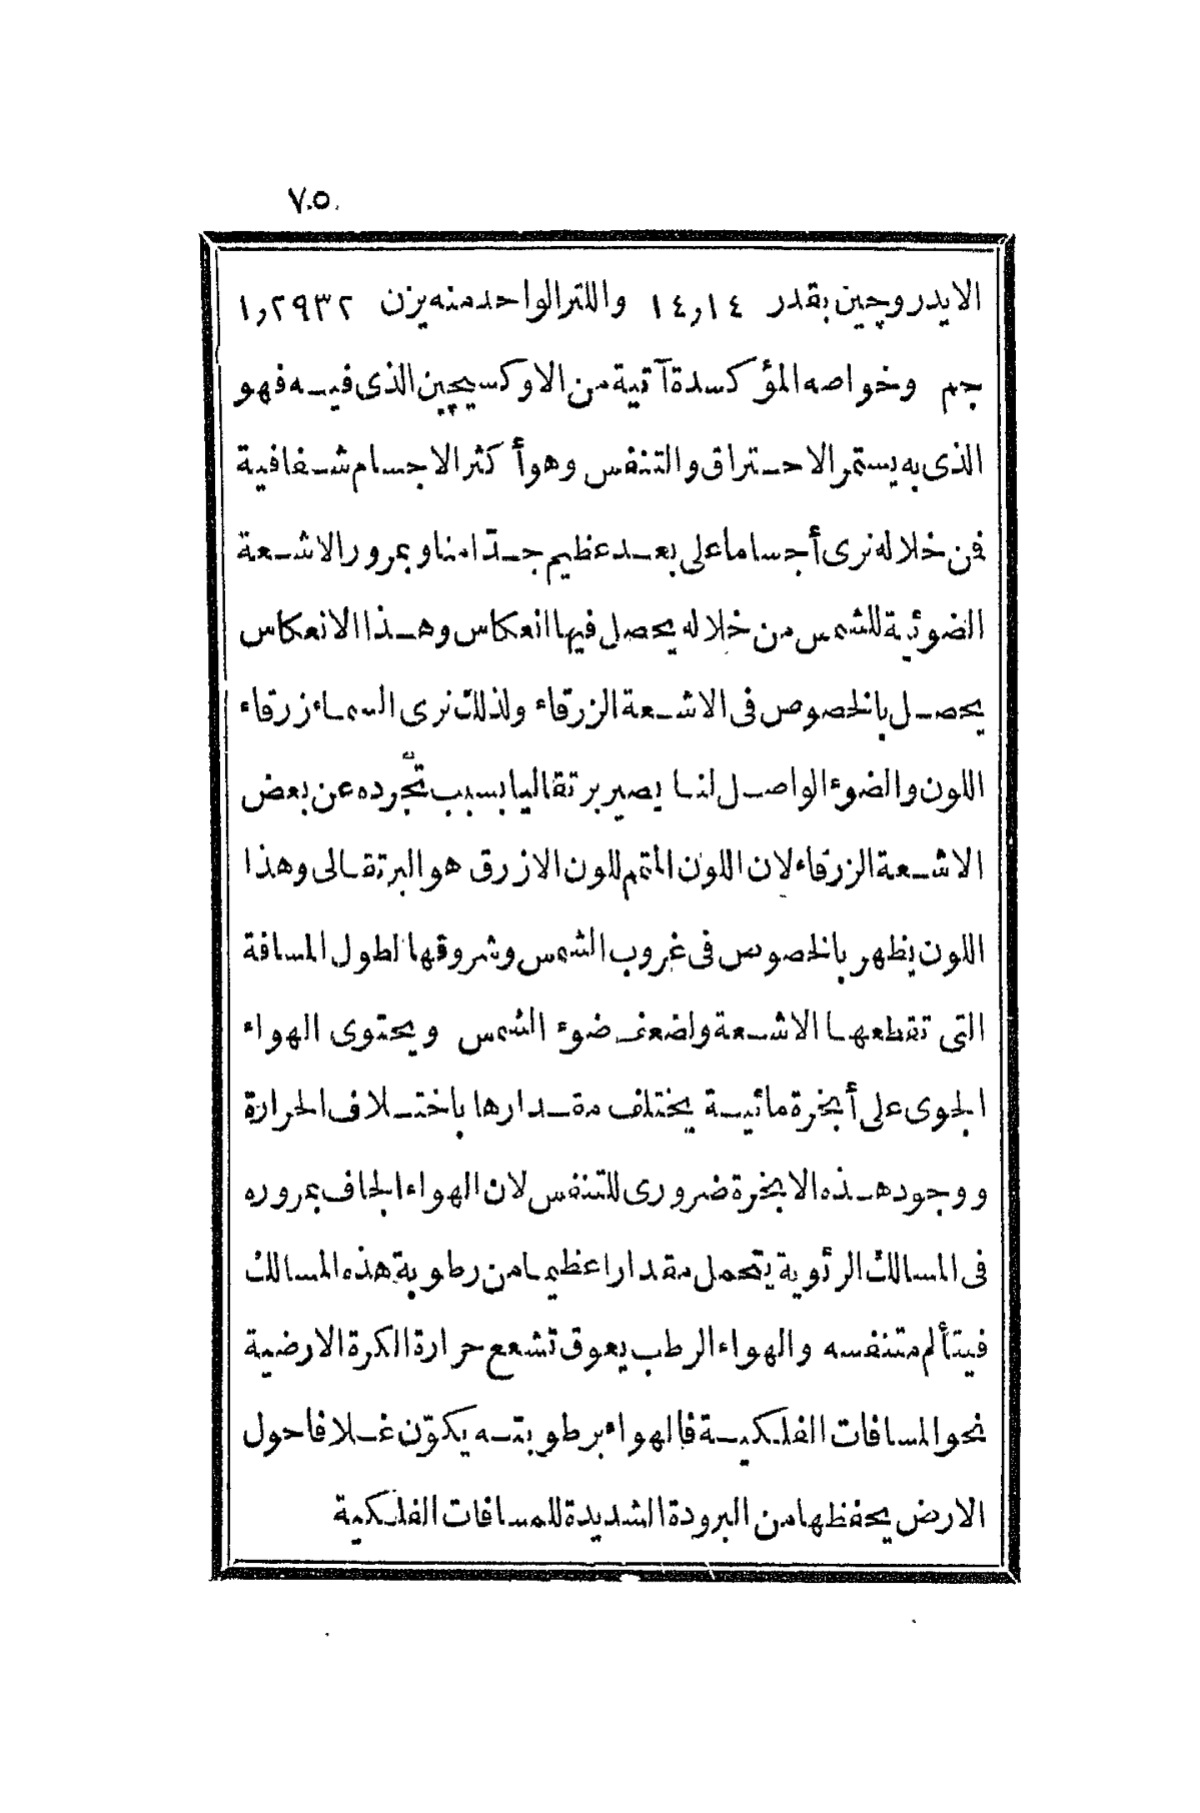 ٧٥
الايدروچين بقدر ١٤٫١٤ واللتر الواحد منه يزن ١٫٢٩٣٢
جم وخواصه المؤكسدة آتية من الاوكسيچين الذى فيه فهو
الذى به يستمر الاحتراق والتنفس وهو أكثر الاجسام شفافية
فمن خلاله نرى أجساما على بعد عظيم جدّا منا وبمرور الاشعة
الضوئية للشمس من خلاله يحصل فيها انعكاس وهذا الانعكاس
يحصل بالخصوص فى الاشعة الزرقاء ولذلك نرى السماء زرقاء
اللون والضوء الواصل لنا يصير برتقاليا بسبب تجرده عن بعض
الاشعة الزرقاء لان اللون المتمم للون الازرق هو البرتقالى وهذا
اللون يظهر بالخصوص فى غروب الشمس وشروقها لطول المسافة
التى تقطعها الاشعة ولضعف ضوء الشمس ويحتوى الهواء
الجوى على أبخرة مائية يختلف مقدارها باختلاف الحرارة
ووجود هذه الابخرة ضرورى للتنفس لان الهواء الجاف بمروره
فى المسالك الرئوية يتحمل مقدارا عظيما من رطوبة هذه المسالك
فيتألم متنفسه والهواء الرطب يعوق تشعع حرارة الكرة الارضية
نحو المسافات الفلكية فالهواء برطوبته يكوّن غلافا حول
الارض يحفظها من البرودة الشديدة للمسافات الفلكية